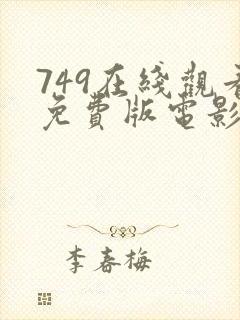 749在綫觀看
免費版電影
李春梅